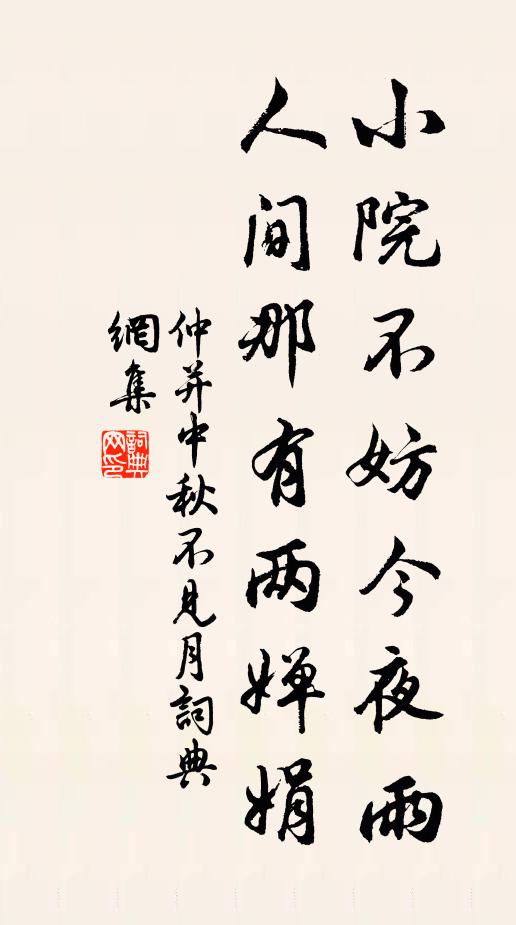 小院不妨今夜雨
人间那有两婵娟
仲并中秋不见月詞典
網集
詞典网印